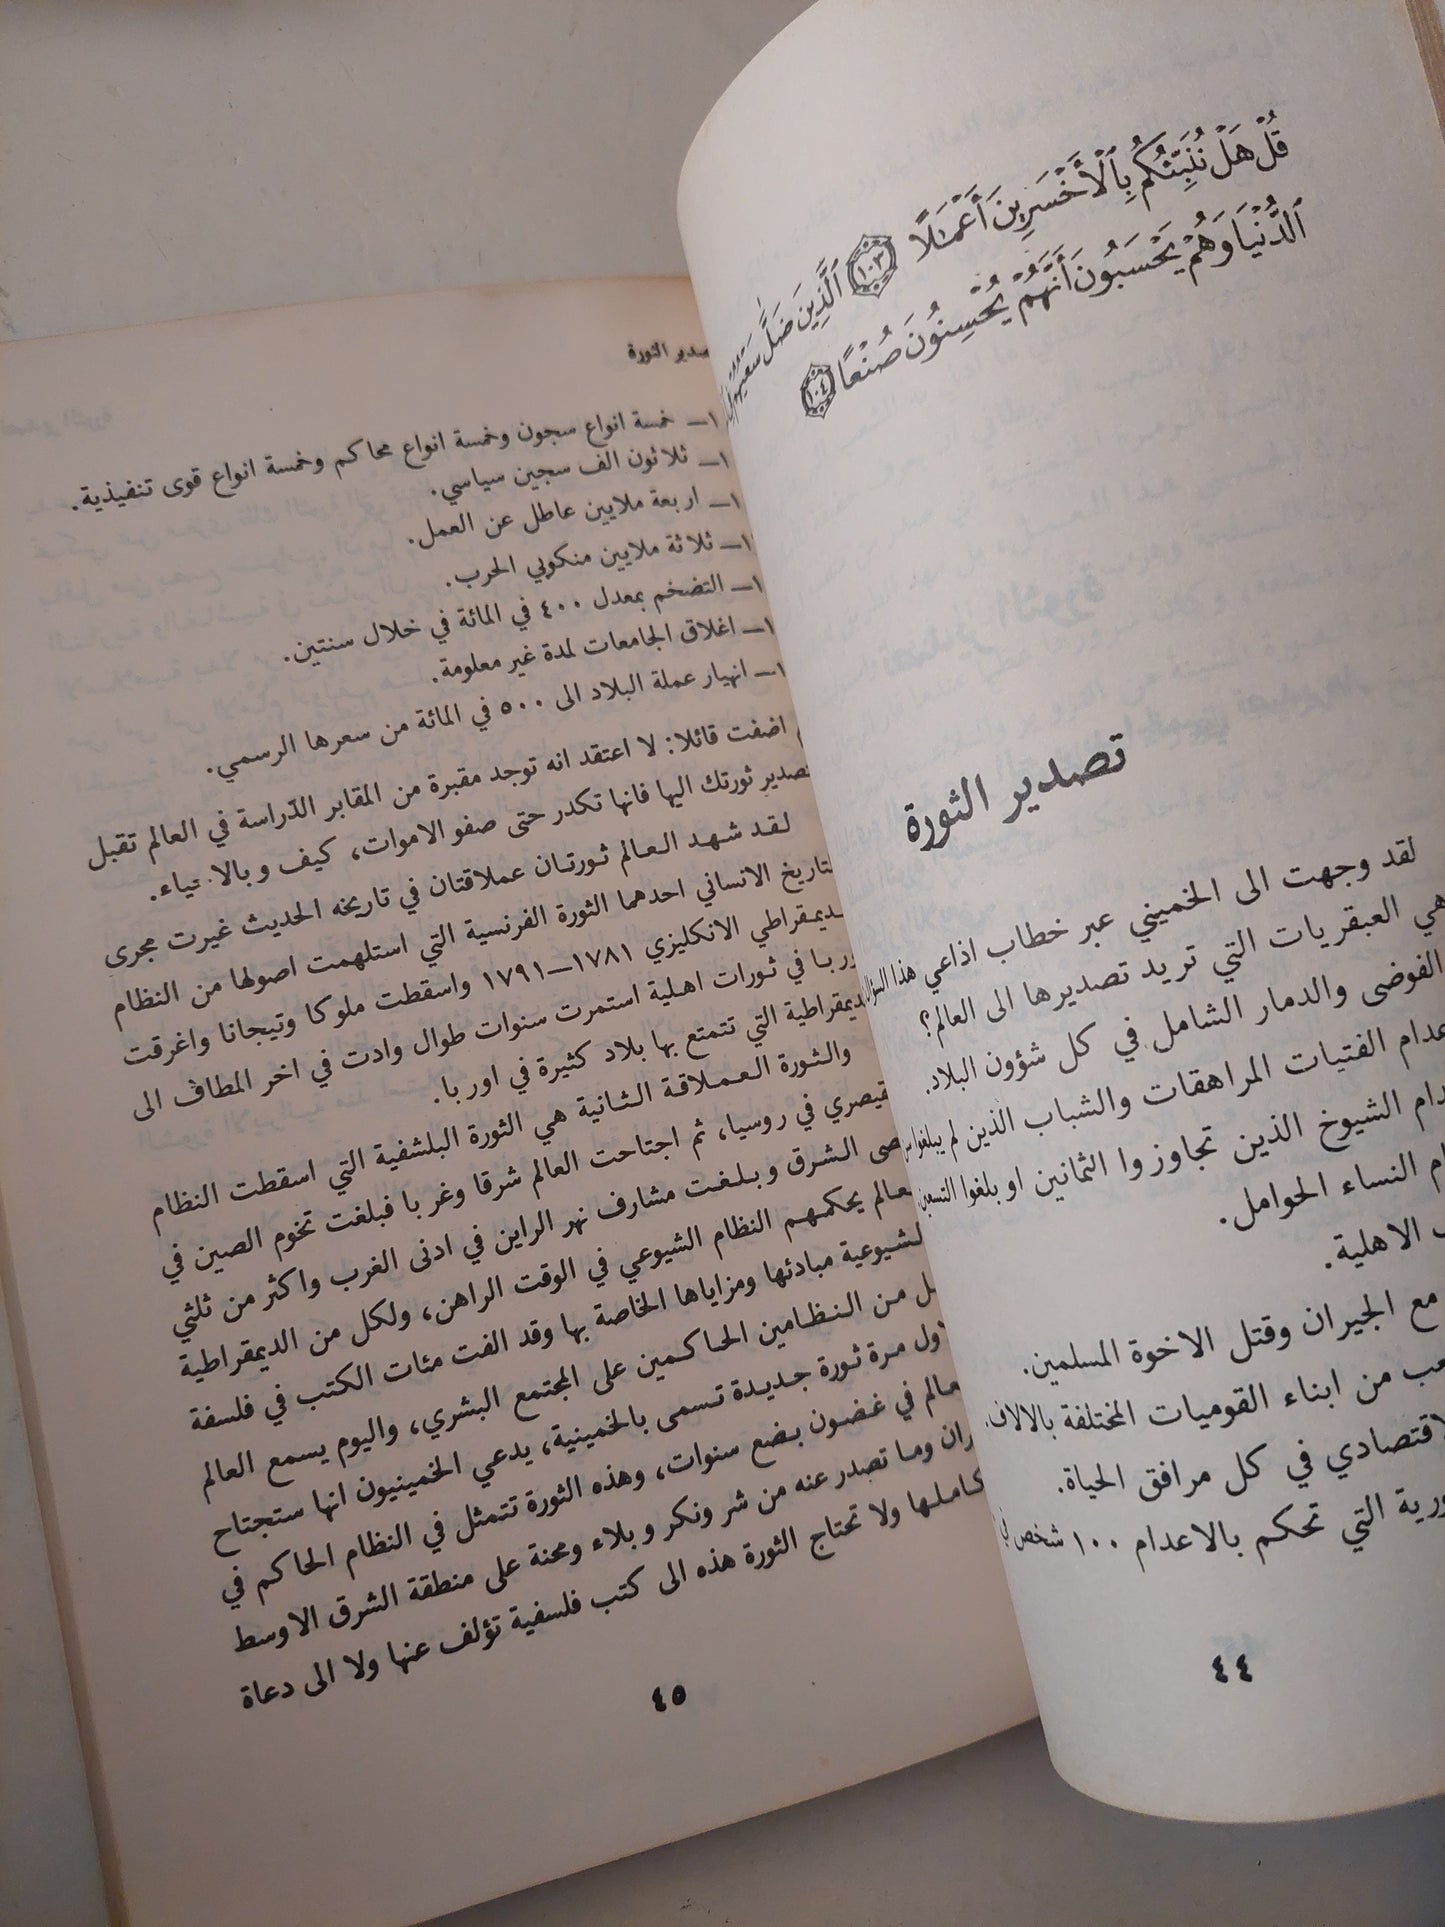 قُلْ هَلْ نُنَبِّئُكُم بِٱلْأَخْسَرِينَ أَعْمَٰلًا ١٠٣ ٱلَّذِينَ ضَلَّ سَعْيُهُمْ
ٱلدُّنْيَا وَهُمْ يَحْسَبُونَ أَنَّهُمْ يُحْسِنُونَ صُنْعًا ١٠٤
تصدير الثورة
لقد وجهت الى الخميني عبر خطاب اذاعي هذا السؤال
هي العبقريات التي تريد تصديرها الى العالم؟
الفوضى والدمار الشامل في كل شؤون البلاد.
عدام الفتيات المراهقات والشباب الذين لم يبلغوا
دام الشيوخ الذين تجاوزوا الثمانين او بلغوا التسعين
م النساء الحوامل.
ب الاهلية.
مع الجيران وقتل الاخوة المسلمين.
عب من ابناء القوميات المختلفة بالالاف.
لاقتصادي في كل مرافق الحياة.
ورية التي تحكم بالاعدام ١٠٠ شخص في
٤٤
صدير الثورة
١ـ خمسة انواع سجون وخمسة انواع محاكم وخمسة انواع قوى تنفيذية.
١ـ ثلاثون الف سجين سياسي.
١ـ اربعة ملايين عاطل عن العمل.
١ـ ثلاثة ملايين منكوبي الحرب.
١ـ التضخم بمعدل ٤٠٠ في المائة في خلال سنتين.
١ـ اغلاق الجامعات لمدة غير معلومة.
١ـ انهيار عملة البلاد الى ٥٠٠ في المائة من سعرها الرسمي.
م اضفت قائلا: لا اعتقد انه توجد مقبرة من المقابر الدّراسة في العالم تقبل
تصدير ثورتك اليها فانها تكدر حتى صفو الاموات، كيف وبالاحياء.
لقد شهد العالم ثورتان عملاقتان في تاريخه الحديث غيرت مجرى
لتاريخ الانساني احدهما الثورة الفرنسية التي استلهمت اصولها من النظام
ديمقراطي الانكليزي ١٧٨١ـ١٧٩١ واسقطت ملوكا وتيجانا واغرقت
وربا في ثورات اهلية استمرت سنوات طوال وادت في اخر المطاف الى
ديمقراطية التي تتمتع بها بلاد كثيرة في اوربا.
والثورة العملاقة الثانية هي الثورة البلشفية التي اسقطت النظام
قيصري في روسيا، ثم اجتاحت العالم شرقا وغربا فبلغت تخوم الصين في
صى الشرق وبلغت مشارف نهر الراين في ادنى الغرب واكثر من ثلثي
عالم يحكمهم النظام الشيوعي في الوقت الراهن، ولكل من الديمقراطية
لشيوعية مبادئها ومزاياها الخاصة بها وقد الفت مئات الكتب في فلسفة
ل من النظامين الحاكمين على المجتمع البشري، واليوم يسمع العالم
لاول مرة ثورة جديدة تسمى بالخمينية، يدعي الخمينيون انها ستجتاح
عالم في غضون بضع سنوات، وهذه الثورة تتمثل في النظام الحاكم في
ران وما تصدر عنه من شر ونكر وبلاء ومحنة على منطقة الشرق الاوسط
كاملها ولا تحتاج الثورة هذه الى كتب فلسفية تؤلف عنها ولا الى دعاة
٤٥